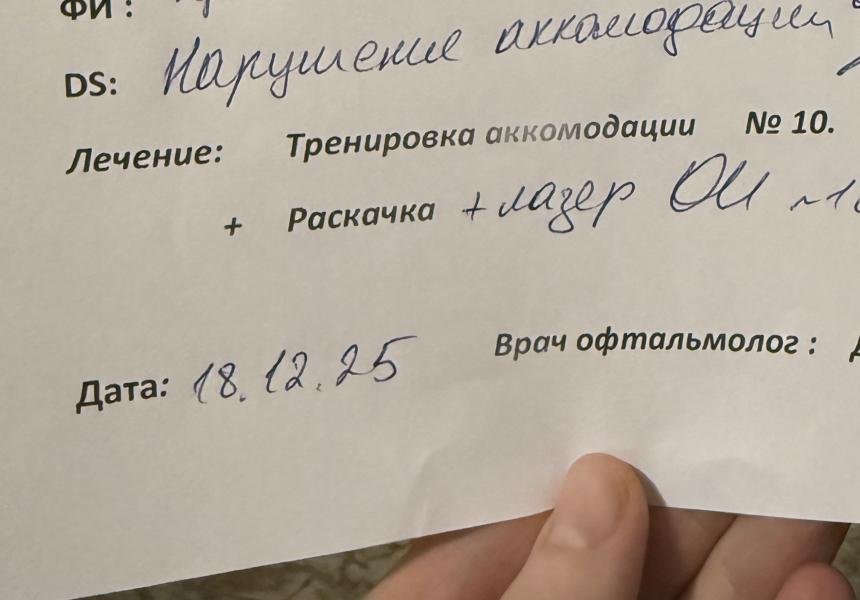 ФИ :
DS: Нарушение аккомодации
Лечение: Тренировка аккомодации № 10.
+ Раскачка + лазер OU
Дата: 18.12.25
Врач офтальмолог :